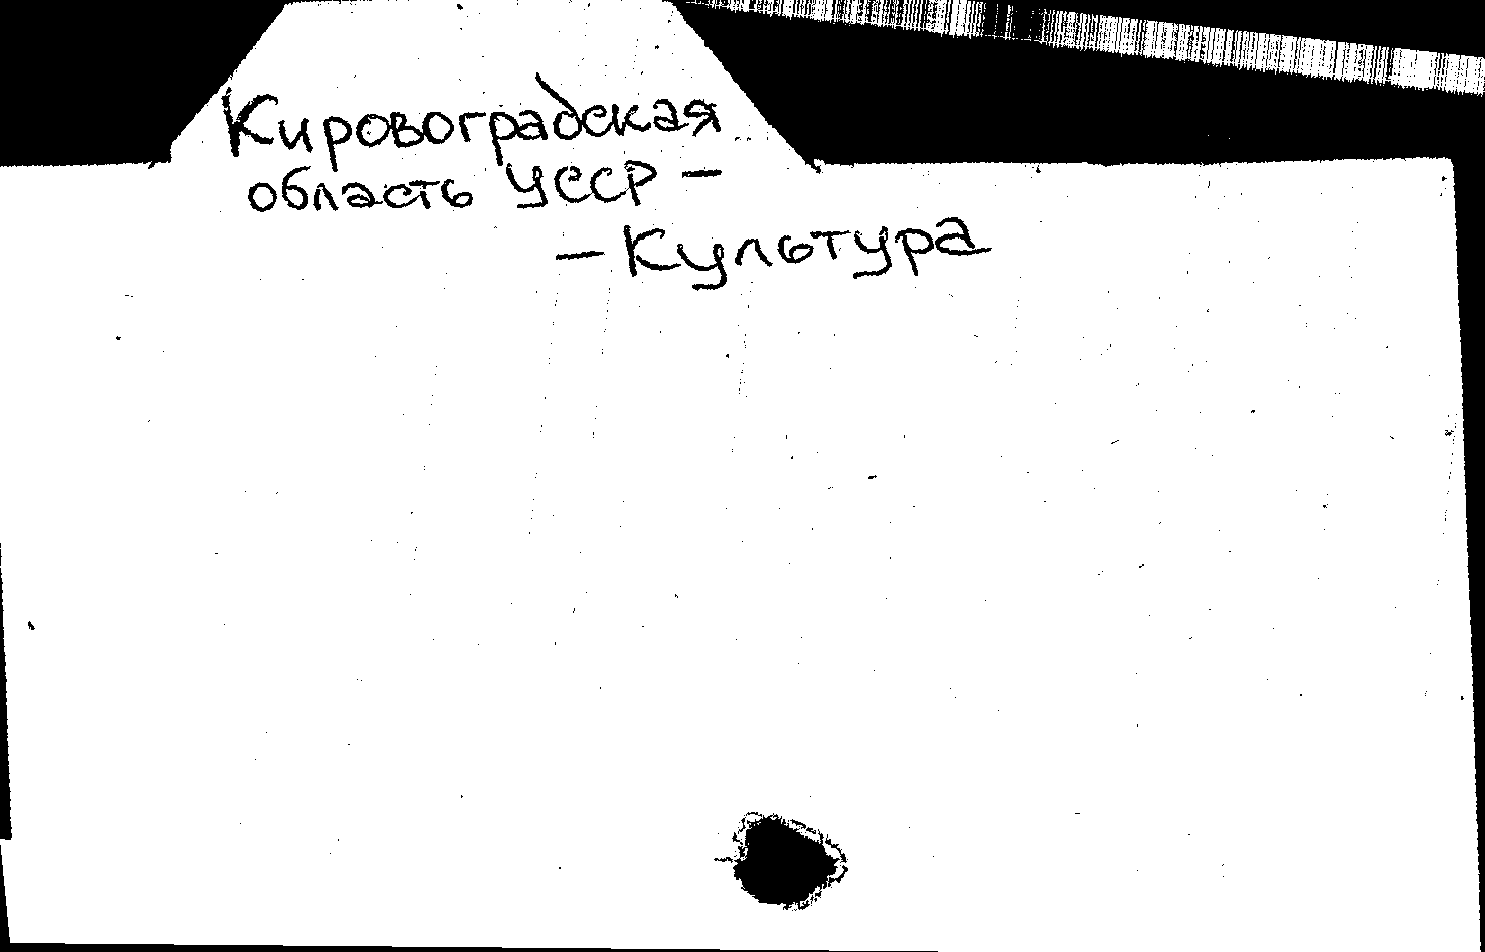 Кировоградская
область УССР –
– Культура